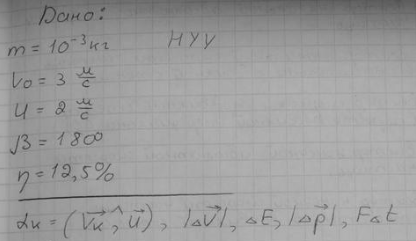 Дано:
m = 10⁻³ кг HYV
V₀ = 3 м/с
U = 2 м/с
β = 180°
η = 12,5%
αк = (V⃗к ^, u⃗), |ΔV⃗|, ΔE, |Δp⃗|, FΔt